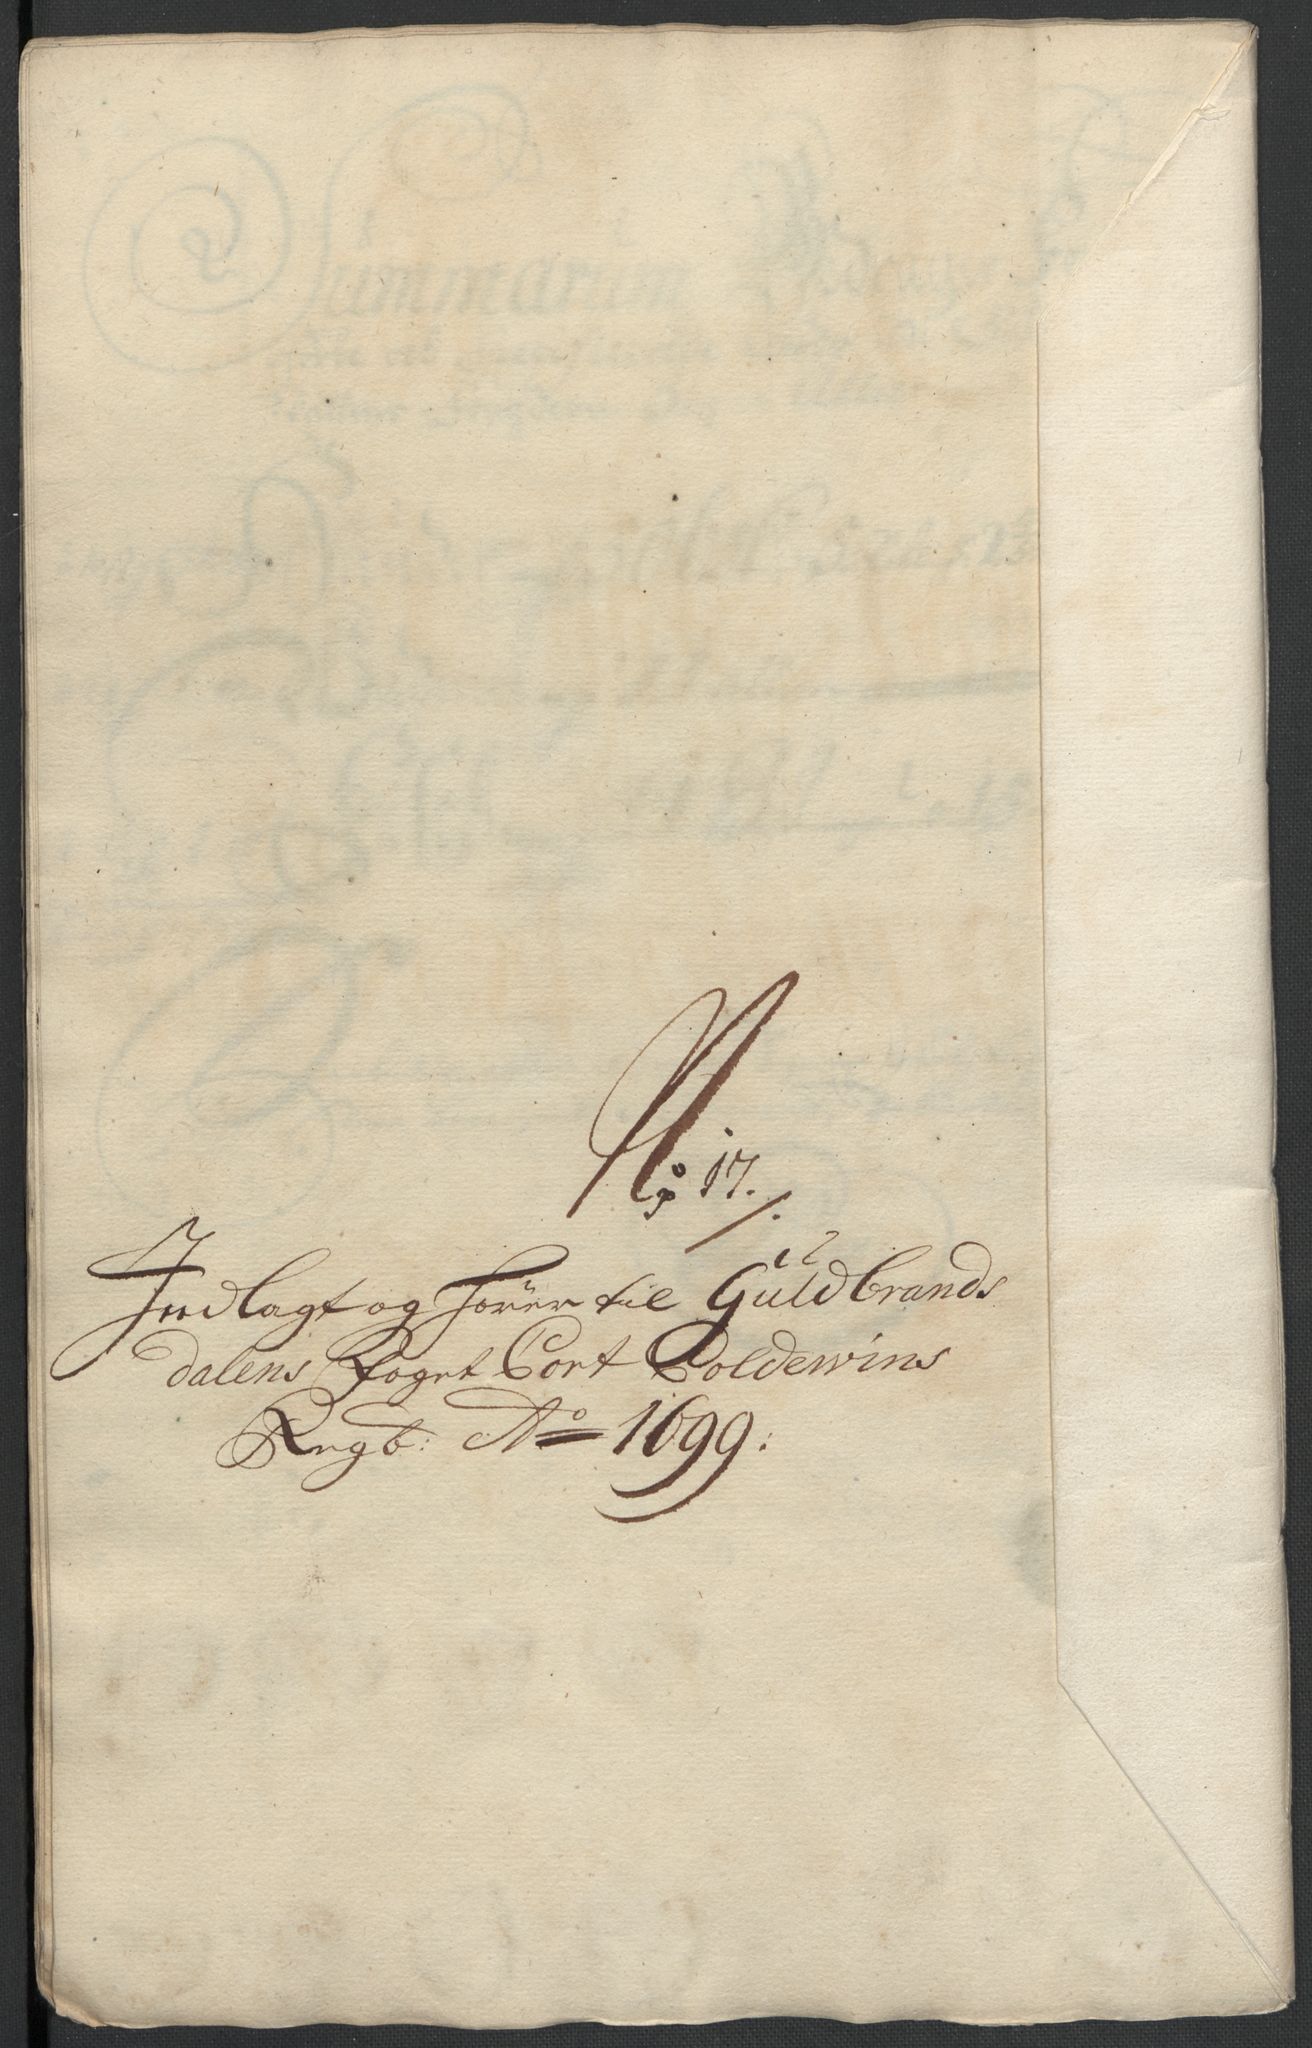 No 17.
Indlagt og hører til Guldbrands
dalens Foget Cort Coldewins
Regb: Ao 1699: